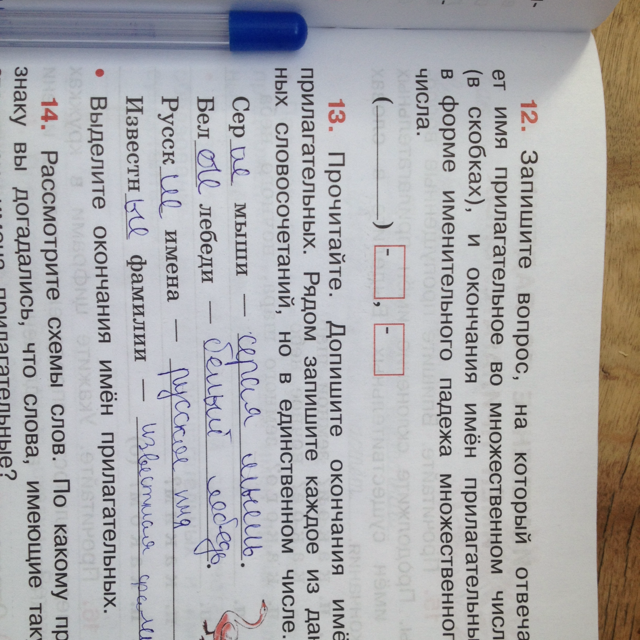 12. Запишите вопрос, на который отвеча
ет имя прилагательное во множественном числ
(в скобках), и окончания имён прилагательны
в форме именительного падежа множественног
числа.
(________) - , -
13. Прочитайте. Допишите окончания имё
прилагательных. Рядом запишите каждое из дан
ных словосочетаний, но в единственном числе.
Серые мыши — серая мышь.
Белые лебеди — белый лебедь.
Русские имена — русское имя
Известные фамилии — известная фами
• Выделите окончания имён прилагательных.
14. Рассмотрите схемы слов. По какому пр
знаку вы догадались, что слова, имеющие таку
имена прилагательные?